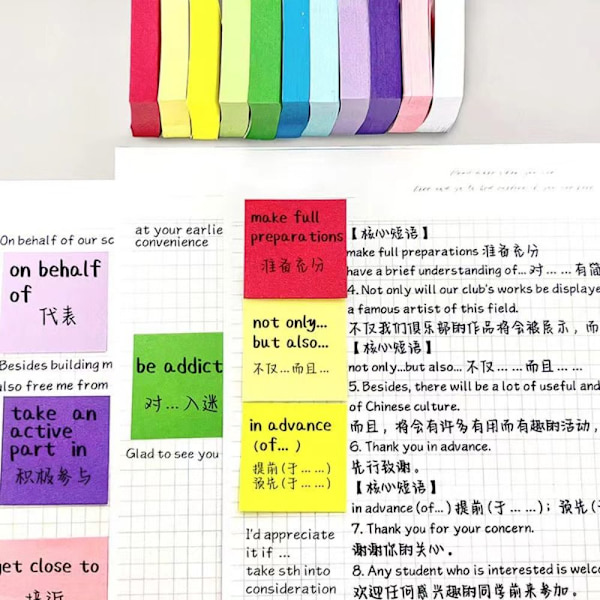 On behalf of our sc
on behalf
of
代表
Besides building m
also free me from
take an
active
part in
积极参与
get close to
接近
at your earlie
convenience
be addict
对...入迷
Glad to see you
make full
preparations
准备充分
not only...
but also...
不仅...而且...
in advance
(of... )
提前(于... ...)
预先(于... ...)
I'd appreciate
it if ...
take sth into
consideration
【核心短语】
make full preparations 准备充分
have a brief understanding of... 对... ...有简
4. Not only will our club's works be displaye
a famous artist of this field.
不仅我们俱乐部的作品将会被展示，而
【核心短语】
not only...but also... 不仅... ...而且... ...
5. Besides, there will be a lot of useful and
of Chinese culture.
而且，将会有许多有用而有趣的活动，
6. Thank you in advance.
先行致谢。
【核心短语】
in advance (of...) 提前(于... ...)；预先(
7. Thank you for your concern.
谢谢你的关心。
8. Any student who is interested is welco
欢迎任何感兴趣的同学前来参加。